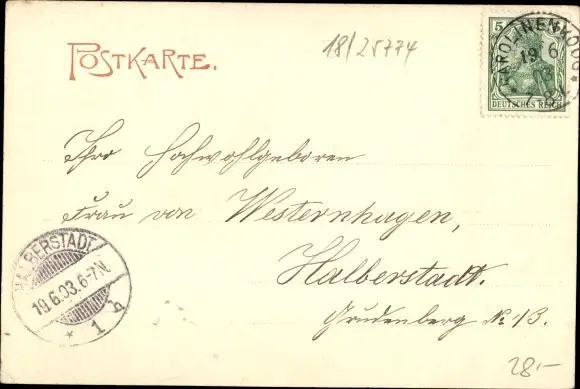 POSTKARTE.
18/25774
5
DEUTSCHES REICH
KAROLINENKOOG
19 6
03
Ihro Hochwohlgeboren
Frau von Westernhagen,
HALBERSTADT
19.6.03.6-7N.
* 1 b
Halberstadt.
Grudenberg No 13.
28.-